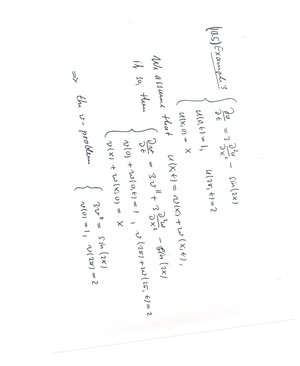 (10.5) Example 3 { ∂u/∂t = 3 ∂²u/∂x² - sin(2x)
u(0,t) = 1, u(2π,t) = 2
u(x,0) = x
We assume that u(x,t) = v(x) + w(x,t),
if so, then { ∂w/∂t = 3v'' + 3 ∂²w/∂x² - sin(2x)
v(0) + w(0,t) = 1, v(2π) + w(2π,t) = 2
v(x) + w(x,0) = x
⇒ the v-problem { 3v'' = sin(2x)
v(0) = 1, v(2π) = 2